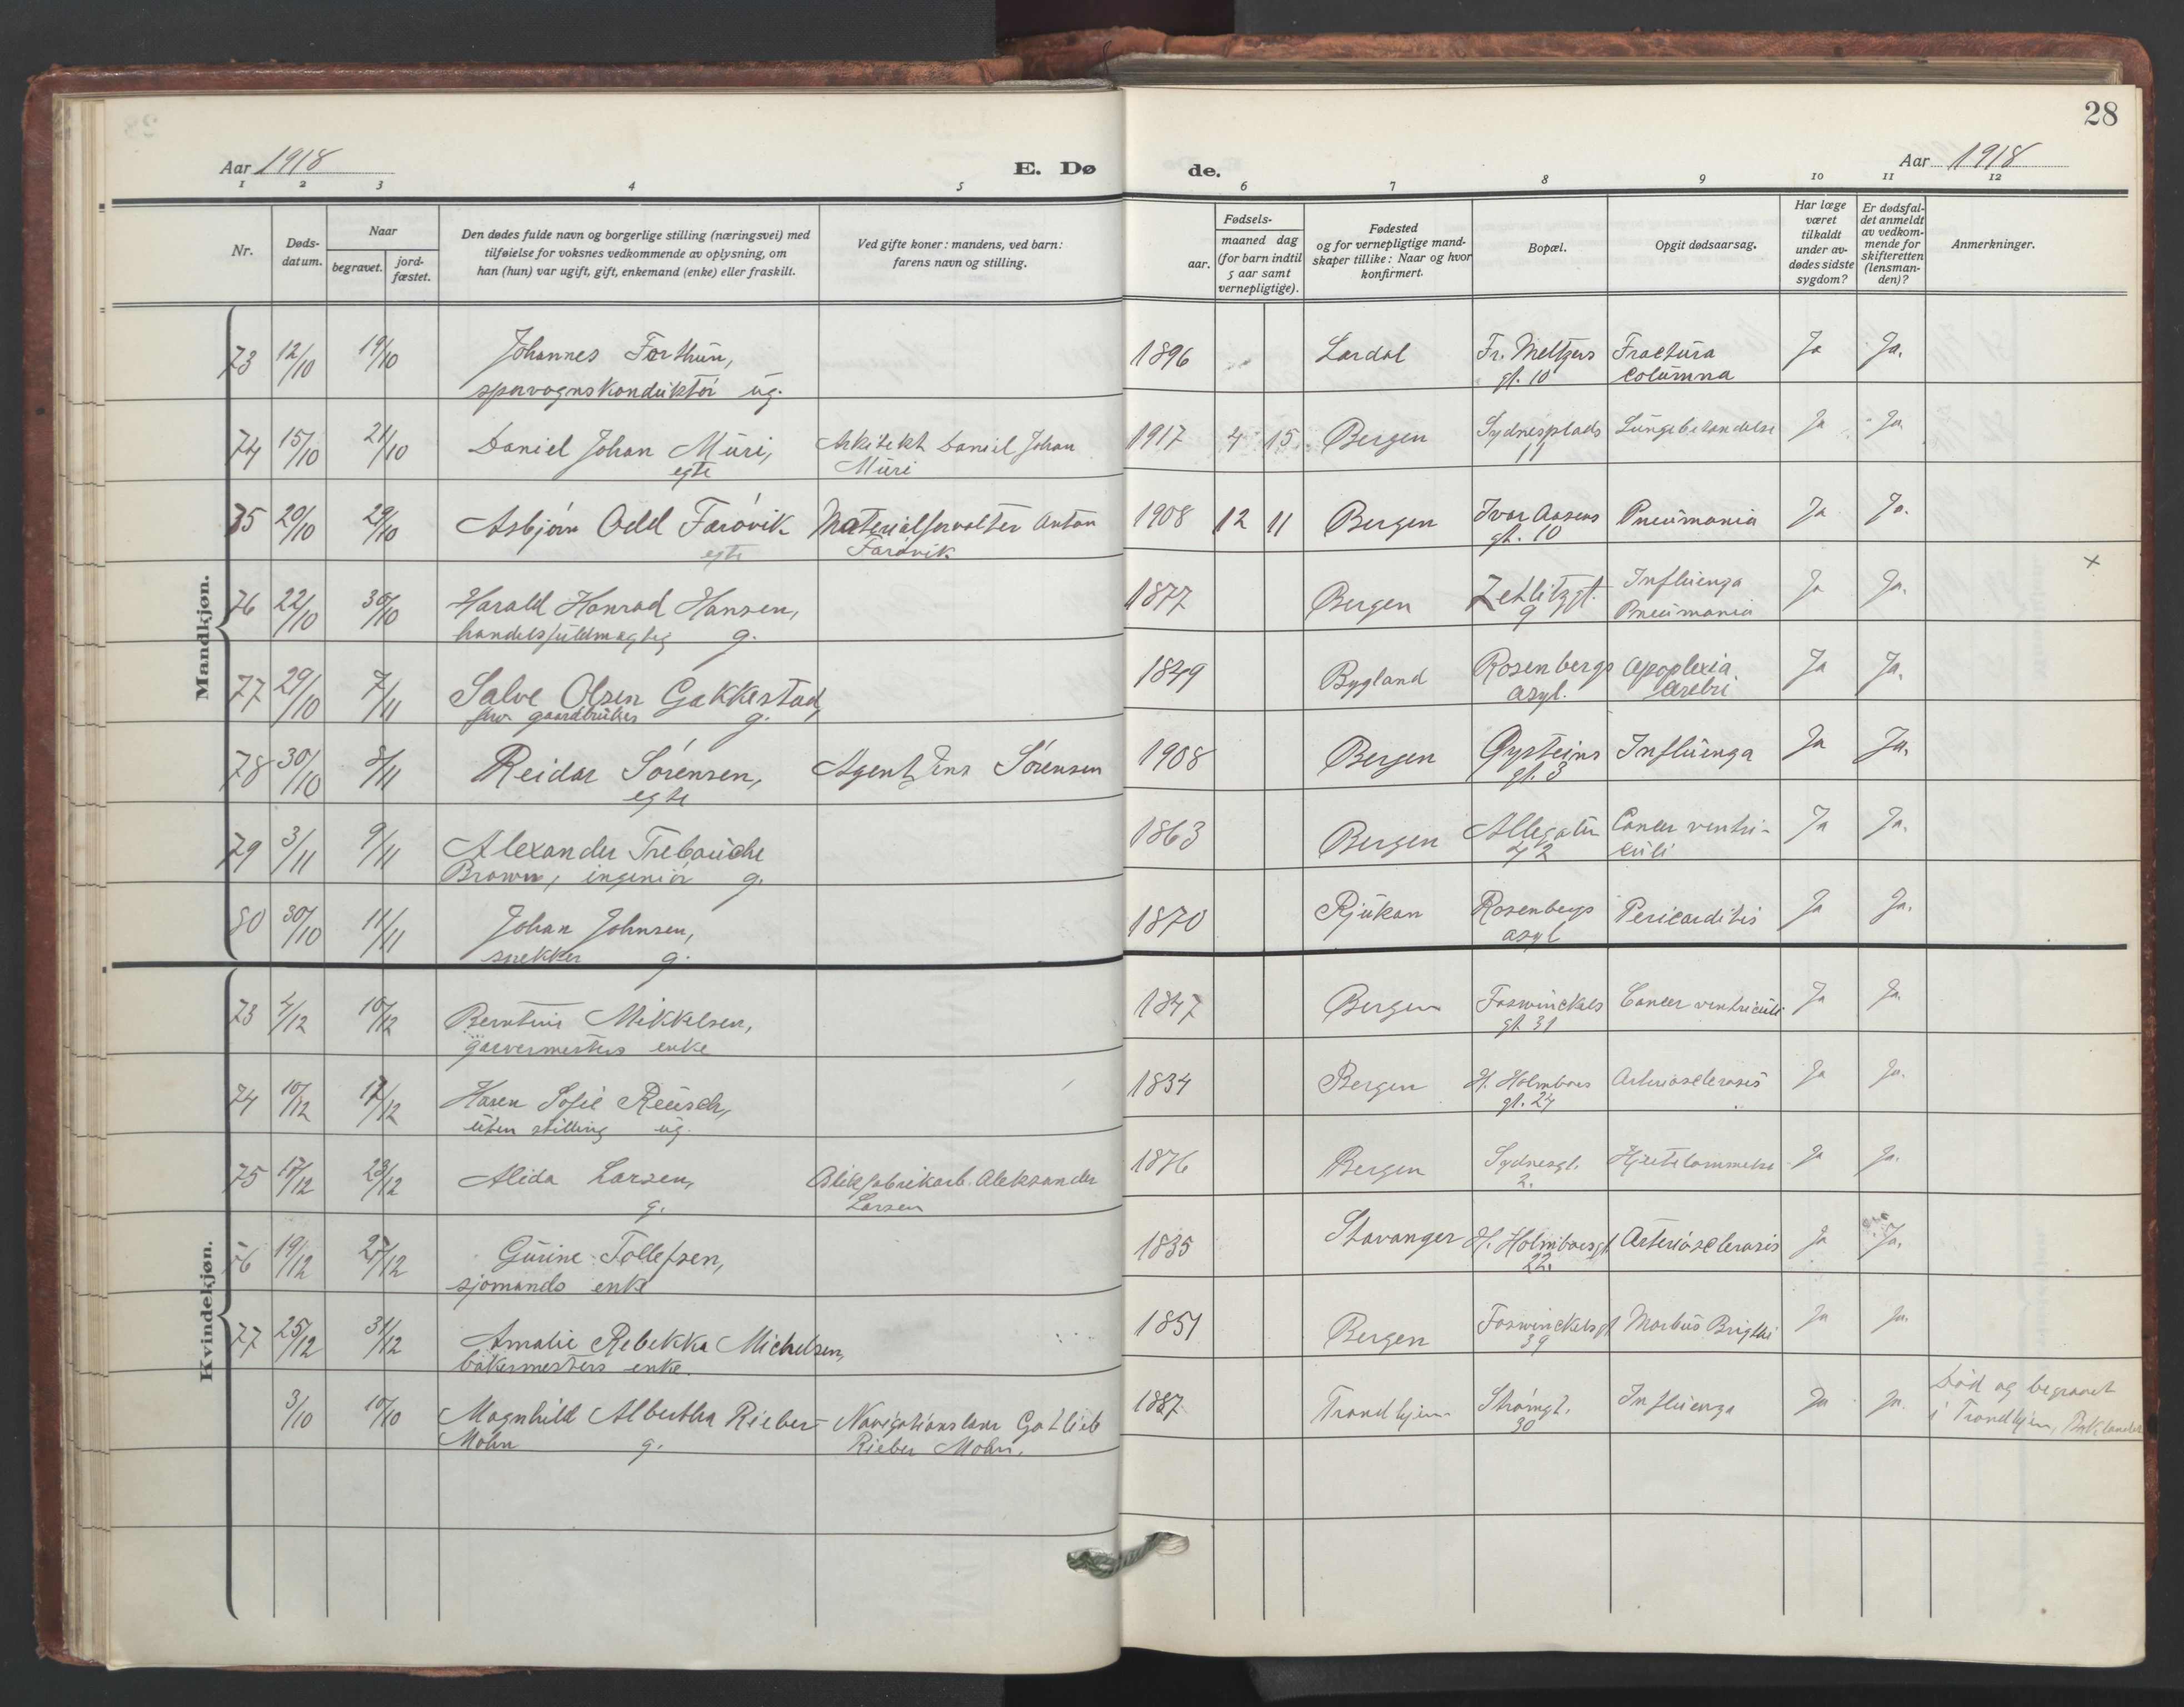 28
Aar 1918
E. Dø
de.
Aar 1918
1 2 3 4 5 6 7 8 9 10 11 12
Nr.
Døds-
datum.
Naar
begravet.
jord-
fæstet.
Den dødes fulde navn og borgerlige stilling (næringsvei) med
tilføielse for voksnes vedkommende av oplysning, om
han (hun) var ugift, gift, enkemand (enke) eller fraskilt.
Ved gifte koner: mandens, ved barn:
farens navn og stilling.
Fødsels-
aar.
maaned dag
(for barn indtil
5 aar samt
vernepligtige).
Fødested
og for vernepligtige mand-
skaper tillike: Naar og hvor
konfirmert.
Bopæl.
Opgit dødsaarsag.
Har læge
været
tilkaldt
under av-
dødes sidste
sygdom?
Er dødsfal-
det anmeldt
av vedkom-
mende for
skifteretten
(lensman-
den)?
Anmerkninger.
Mandkjøn.
73 12/10 19/10 Johannes Forthun, 1896 Lardal Fr. Meltzers Fractura Ja Ja.
sporvognskonduktør ug. gt. 10 Columna
74 15/10 21/10 Daniel Johan Müri, Arkitekt Daniel Johan 1917 4 15 Bergen Sydnesplads Lungebetændelse Ja Ja.
egte Müri 11
75 20/10 29/10 Asbjørn Odd Farövik Materialforvalter Anton 1908 12 11 Bergen Ivar Aasens Pneumonia Ja Ja.
egte Farövik gt. 10
76 22/10 30/10 Harald Konrad Hansen, 1877 Bergen Zetlitzgt. Influenza Ja Ja. x
handelsfuldmægtig g. 9 Pneumonia
77 29/10 7/11 Salve Olsen Gakkestad, 1849 Bygland Rosenbergs Apoplexia Ja Ja.
fhv. gaardbruker g. asyl. cerebri
78 30/10 8/11 Reidar Sörensen, Agent Jens Sörensen 1908 Bergen Øysteins Influenza Ja Ja.
egte gt. 3
79 3/11 9/11 Alexander Trebouche 1863 Bergen Allegaten Cancer ventri- Ja Ja.
Brown, ingeniör g. 42 culi
80 30/10 11/11 Johan Johnsen, 1870 Rjukan Rosenbergs Pericarditis Ja Ja.
snekker g. asyl
Kvindekjøn.
73 4/12 10/12 Berntine Mikkelsen, 1847 Bergen Foswinckels Cancer ventriculi Ja Ja
garvermesters enke gt 31
74 10/12 17/12 Karen Sofie Reusch, 1834 Bergen H. Holmboes Arteriosclerosis Ja Ja.
uten stilling ug. gt. 24
75 17/12 23/12 Alida Larsen, Blikfabrikarb. Aleksander 1876 Bergen Sydnesgt. Hjertelammelse Ja Ja.
g. Larsen 2.
76 19/12 27/12 Gurine Tollefsen, 1835 Stavanger H. Holmboesgt Arteriosclerosis Ja Ja.
sjømands enke 22.
77 25/12 31/12 Amalie Rebekka Michelsen, 1851 Bergen Foswinckelsgt Morbus Brigthi Ja Ja.
bakermesters enke. 39
3/10 10/10 Magnhild Albertha Rieber- Navigationslærer Gotlieb 1887 Trondhjem Strömgt. Influenza Ja Ja Död og begravet
Mohn g. Rieber Mohn. 30 i Trondhjem, Baklandet